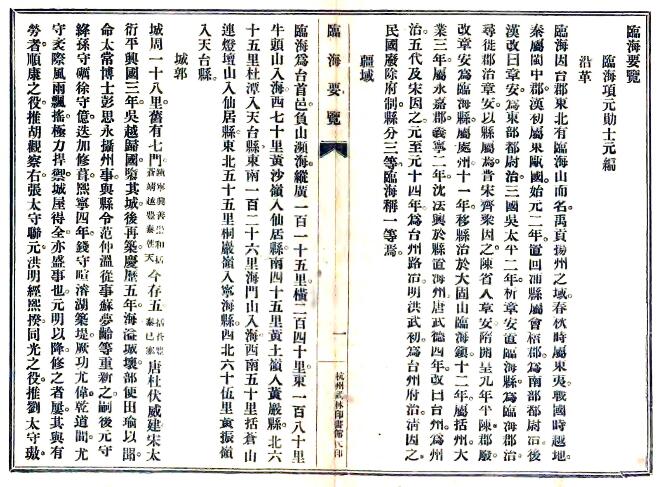 臨海要覽
臨海項元勛士元編
沿革
臨海因台郡東北有臨海山而名禹貢揚州之域春秋時屬東夷戰國時越地
秦屬閩中郡漢初屬東甌國始元二年置回浦縣屬會稽郡爲南部都尉治後
漢改曰章安爲東部都尉治三國吳太平二年析章安置臨海縣爲臨海郡治
尋徙郡治章安以縣屬焉晉宋齊梁因之陳省入章安隋開皇九年平陳郡廢
改章安爲臨海縣屬處州十一年移縣治於大固山臨海鎮十二年屬括州大
業三年屬永嘉郡義寧二年沈法興於縣置海州唐武德四年改曰台州爲州
治五代及宋因之元至元十四年爲台州路治明洪武初爲台州府治清因之
民國廢除府制縣分三等臨海稱一等焉
疆域
臨海要覽
一
杭州武林印書館代印
臨海爲台首邑負山瀕海縱廣一百一十五里橫二百四十里東一百八十里
牛頭山入海西七十里黃沙嶺入仙居縣南四十五里黃土嶺入黃巖縣北六
十五里杜潭入天台縣東南一百二十六里海門山入海西南五十里括蒼山
連燈壇山入仙居縣東北五十五里桐巖嶺入寧海縣西北六十伍里黃振嶺
入天台縣
城郭
城周一十八里舊有七門鎮寧興善崇和括蒼靖越豊泰朝天今存五括蒼豊泰已塞唐杜伏威建宋太
平興國三年吳越歸國隳其城後再築慶歷五年海溢城壞部使田瑜以聞
命太常博士彭思永攝州事與縣令范仲溫從事蘇夢齡等重新之嗣後元守
絳孫守礪徐守億迭加修葺熙寧四年錢守暄濬湖築堤厥功尤偉乾道間尤
守袤際風雨飄搖極力捍禦城屋得全亦盛事也元明以降修之者屢其與有
勞者順康之役推胡觀察右張太守聯元洪明經熙揆同光之役推劉太守璈